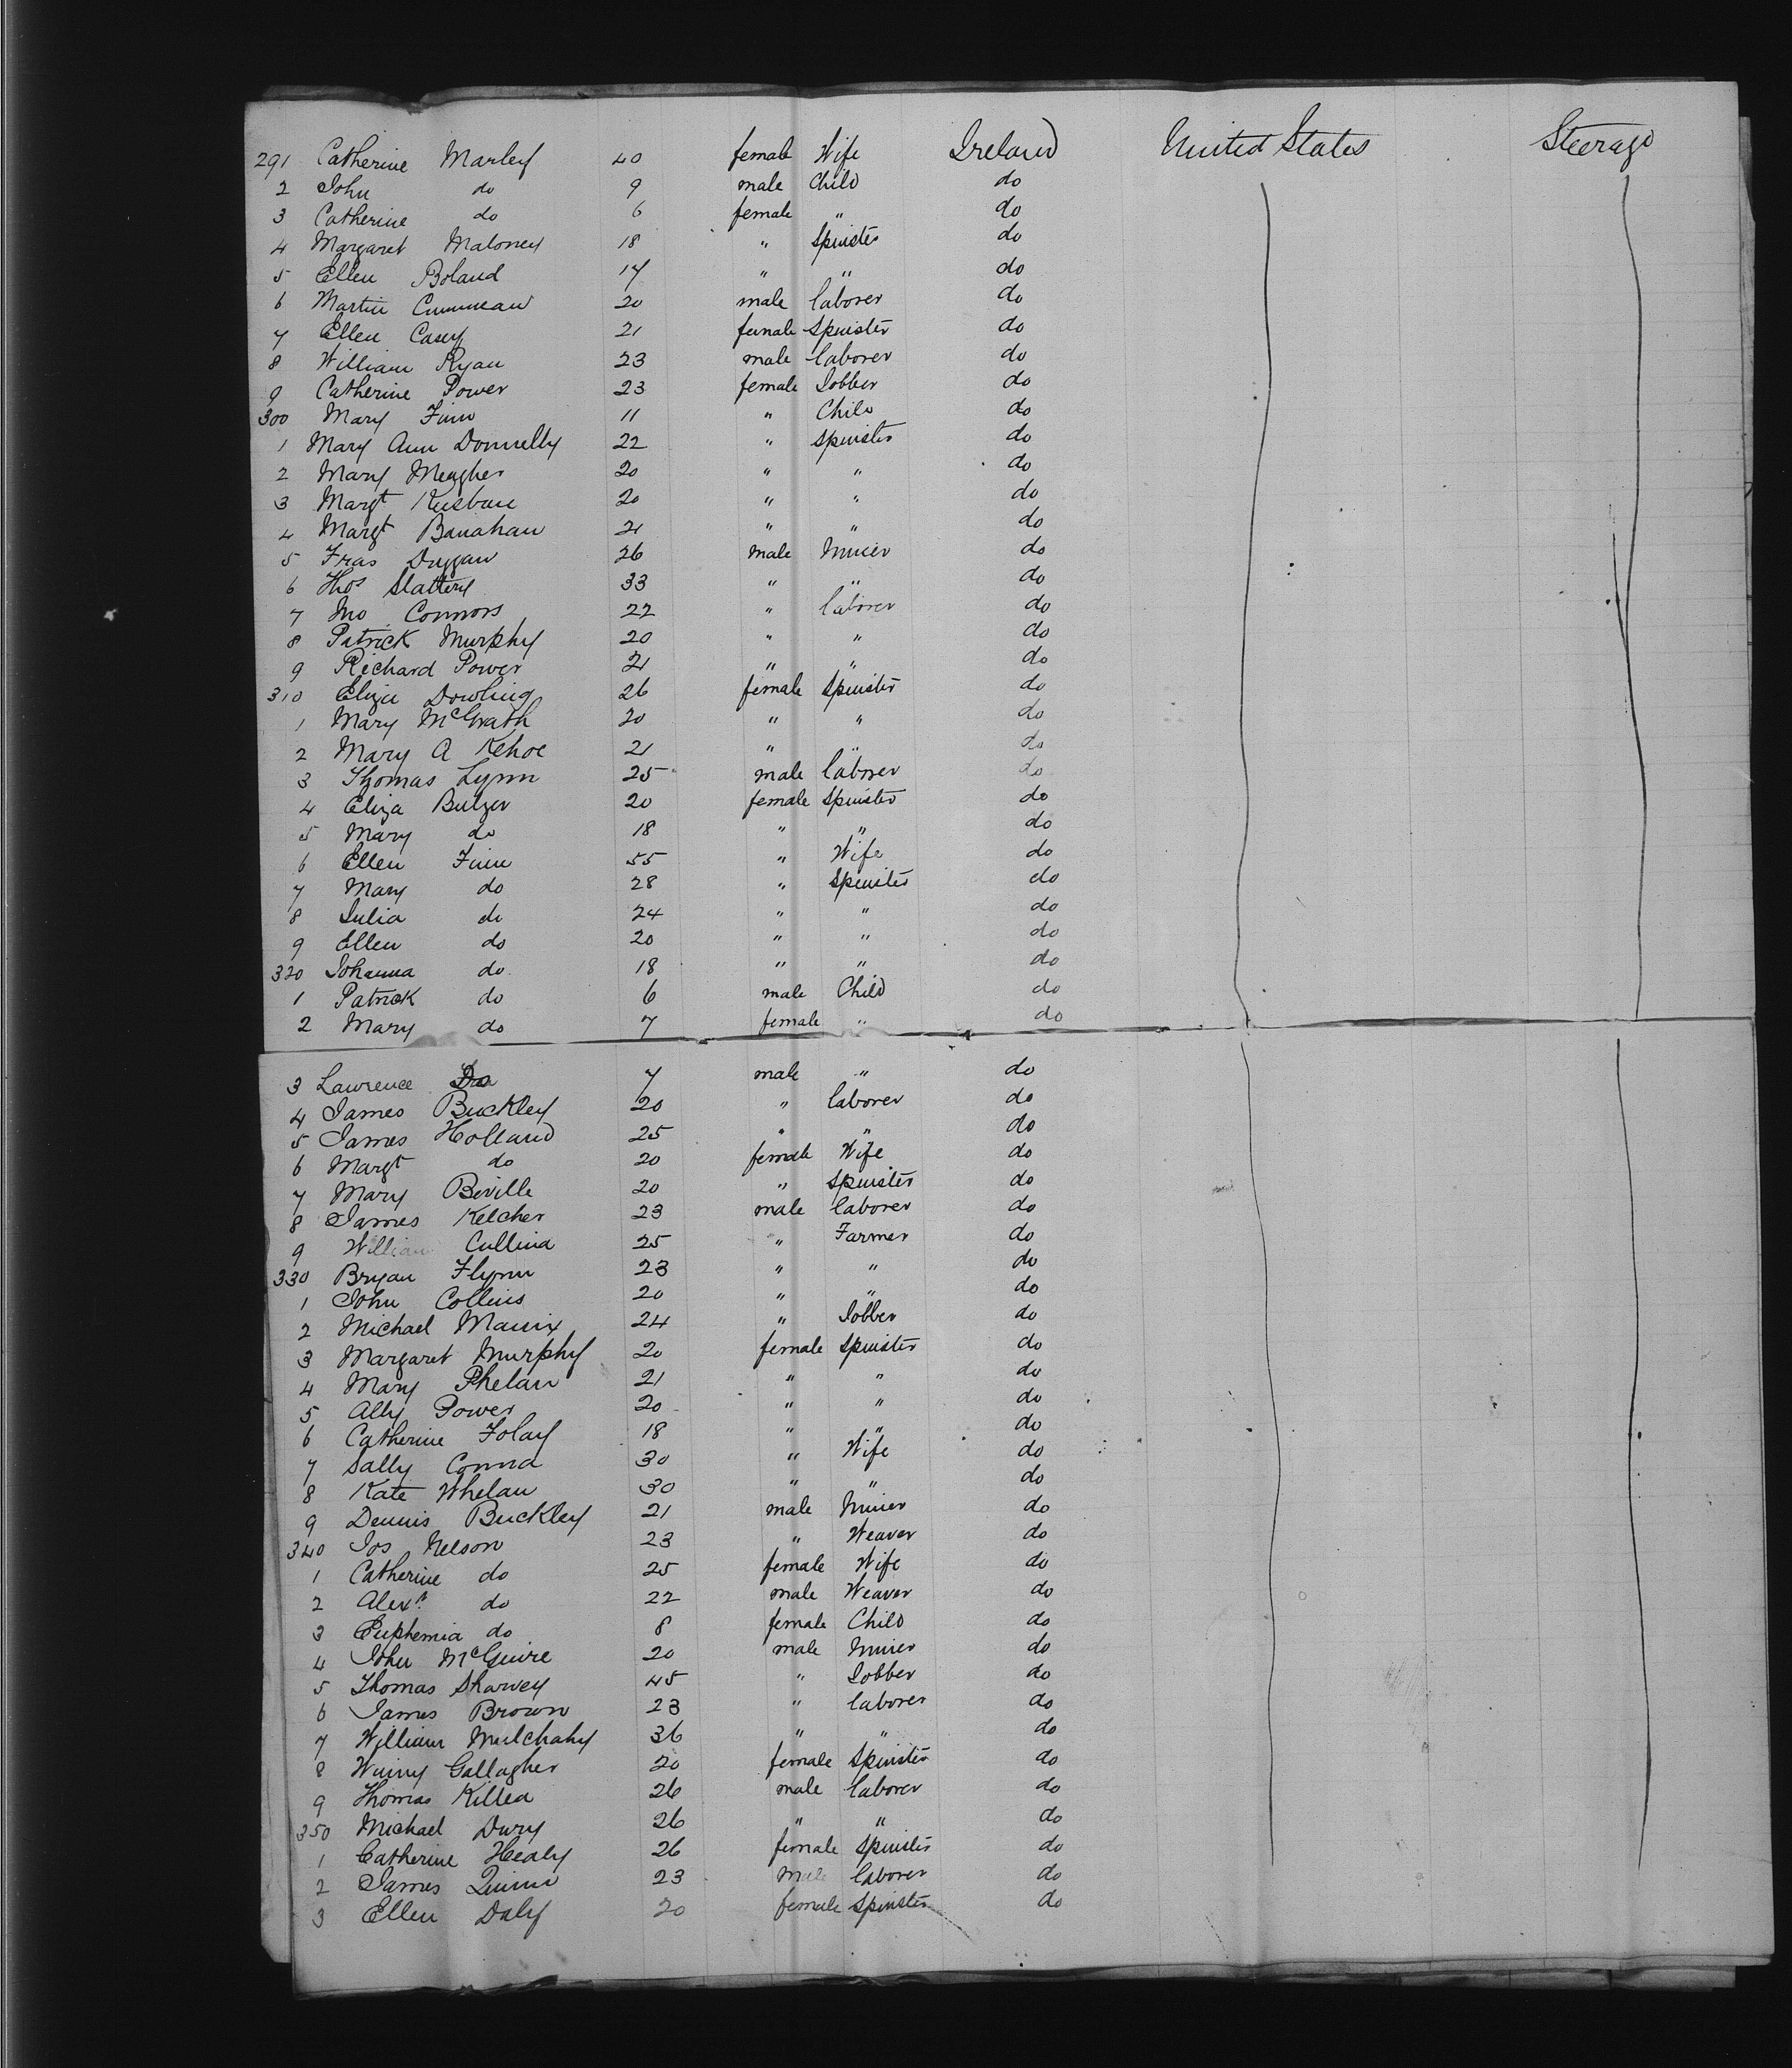 291 Catherine Marley 40 female Wife Ireland United States Steerage
2 John do 9 male Child do
3 Catherine do 6 female " do
4 Margaret Maloney 18 " Spinster do
5 Ellen Boland 17 " " do
6 Martin Cummeau 20 male laborer do
7 Ellen Casey 21 female Spinster do
8 William Ryan 23 male laborer do
9 Catherine Power 23 female Jobber do
300 Mary Finn 11 " Child do
1 Mary Ann Donnelly 22 " Spinster do
2 Mary Meagher 20 " " do
3 Margt 20 " " do
4 Margt Banahan 21 " " do
5 Fras Duggan 26 male Miner do
6 Thos Slattery 33 " " do
7 Jno Connors 22 " laborer do
8 Patrick Murphy 20 " " do
9 Richard Power 21 " " do
310 Eliza Dowling 26 female Spinster do
1 Mary McGrath 20 " " do
2 Mary A Kehoe 21 " " do
3 Thomas Lynn 25 male laborer do
4 Eliza Bulger 20 female Spinster do
5 Mary do 18 " " do
6 Ellen Finn 55 " Wife do
7 Mary do 28 " Spinster do
8 Julia do 24 " " do
9 Ellen do 20 " " do
320 Johanna do 18 " " do
1 Patrick do 6 male Child do
2 Mary do 7 female " do
3 Lawrence Do 7 male " do
4 James Buckley 20 " laborer do
5 James Holland 25 " " do
6 Margt do 20 female Wife do
7 Mary Beville 20 " Spinster do
8 James Kelcher 23 male laborer do
9 William Cullina 25 " Farmer do
330 Bryan Flynn 23 " " do
1 John Collins 20 " " do
2 Michael Manix 24 " Jobber do
3 Margaret Murphy 20 female Spinster do
4 Mary Phelan 21 " " do
5 Ally Power 20 " " do
6 Catherine Folay 18 " " do
7 Sally Conna 30 " Wife do
8 Kate Whelan 30 " " do
9 Dennis Buckley 21 male Miner do
340 Jos Nelson 23 " Weaver do
1 Catherine do 25 female Wife do
2 Alexr do 22 male Weaver do
3 Euphemia do 8 female Child do
4 John McGuire 20 male Miner do
5 Thomas Sharvey 45 " Jobber do
6 James Brown 23 " laborer do
7 William Mulchahy 36 " " do
8 Winny Gallagher 20 female Spinster do
9 Thomas Killea 26 male laborer do
350 Michael Dury 26 " " do
1 Catherine Healy 26 female Spinster do
2 James Quinn 23 male laborer do
3 Ellen Daly 20 female Spinster do